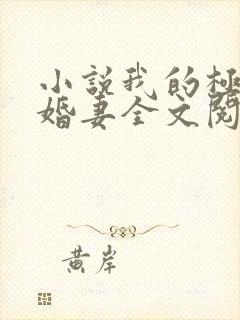 小説我的極
婚妻全文閱
黃岸